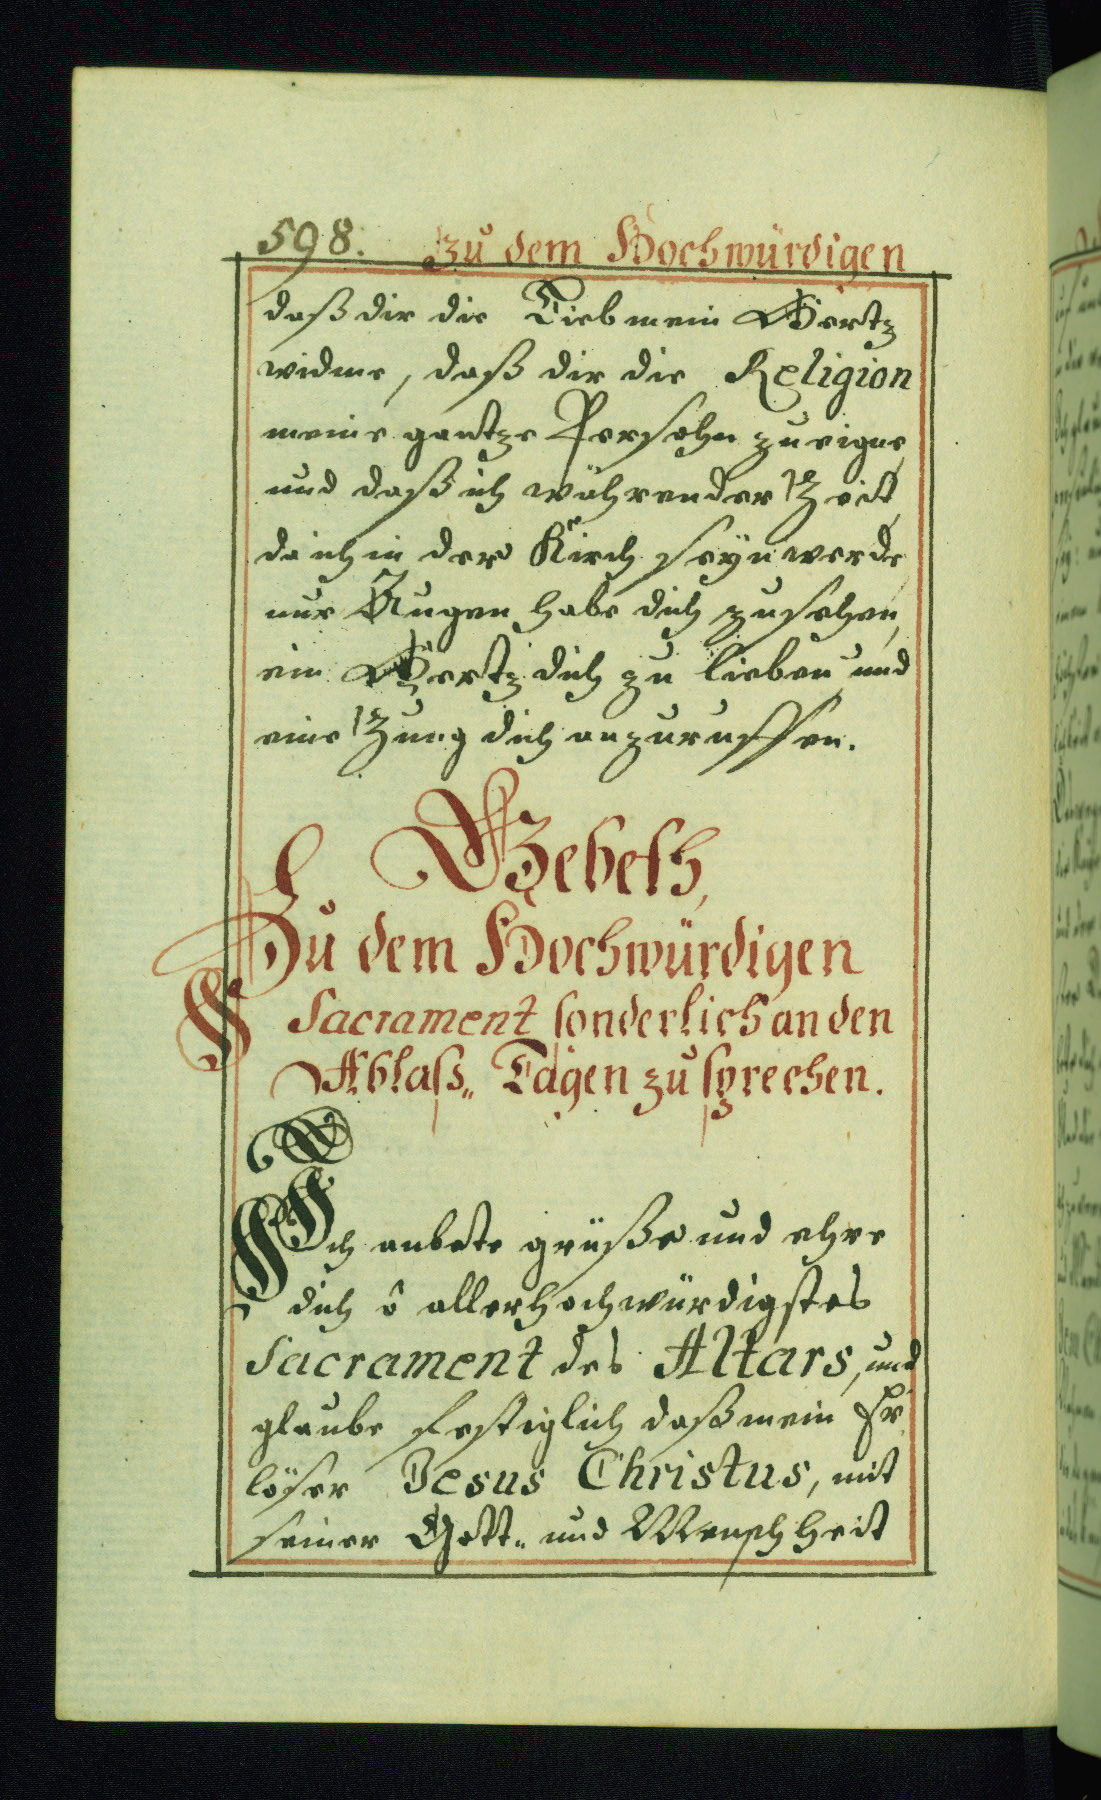 598. Zu dem Hochwürdigen
daß dir die Lieb mein Hertz
widme, daß dir die Religion
meine gantze Persohn zu eigne
und daß ich währender Zeit,
da ich in der Kirch seÿn werde
nur Augen habe dich zu sehen,
ein Hertz dich zu lieben und
eine Zung dich anzuruffen.
Gebeth,
Zu dem Hochwürdigen
Sacrament sonderlich an den
Ablass„ Tägen zu sprechen.
Ich anbete grüße und ehre
dich ô allerhochwürdigstes
Sacrament des Altars, und
glaube festiglich daß mein Er„
löser Jesus Christus, mit
seiner Gott„ und Menschheit